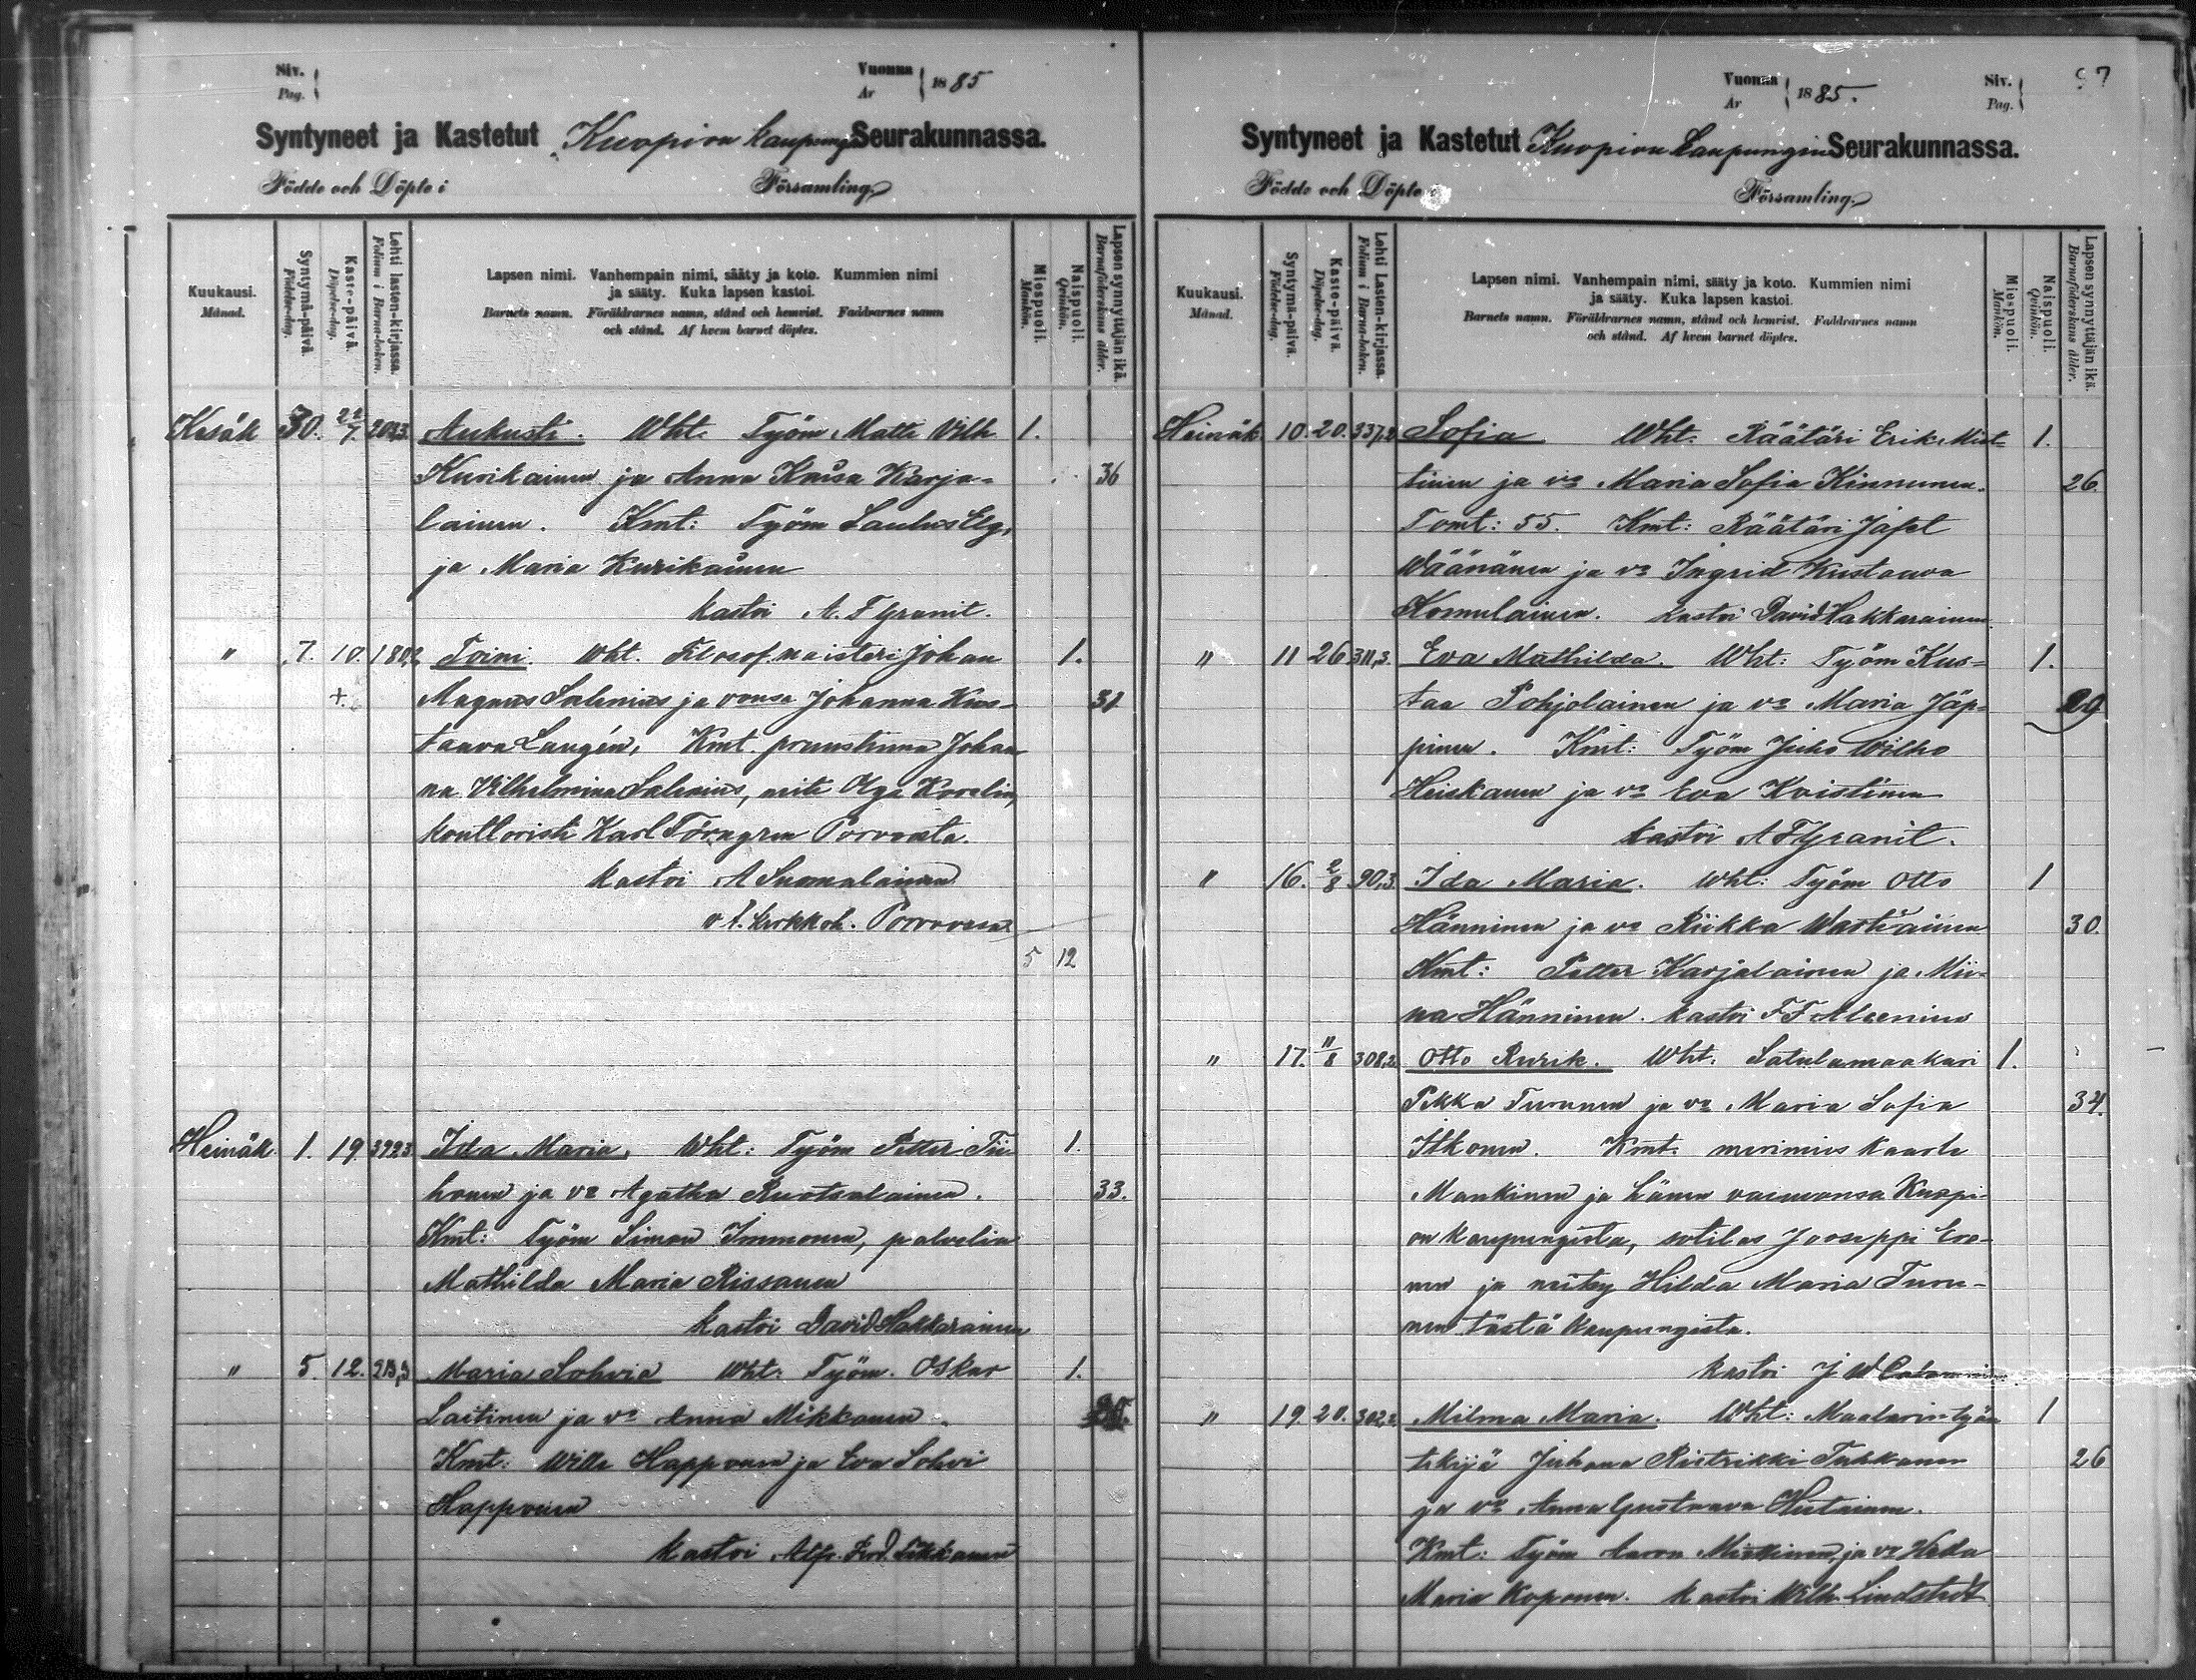 Siv.
Pag.
Vuonna
År
1885
Syntyneet ja Kastetut Kuopion kaupungin Seurakunnassa.
Födde och Döpte i Församling
Kuukausi.
Månad.
Syntymä-päivä.
Födelse-dag.
Kaste-päivä.
Döpelse-dag.
Lehti lasten-kirjassa.
Folium i Barna-boken.
Lapsen nimi. Vanhempain nimi, sääty ja koto. Kummien nimi
ja sääty. Kuka lapsen kastoi.
Barnets namn. Föräldrarnes namn, stånd och hemvist. Faddrarnes namn
och stånd. Af hvem barnet döptes.
Miespuoli.
Mankön.
Naispuoli.
Qvinkön.
Lapsen synnyttäjän ikä.
Barnaföderskans ålder.
Kesäk 30. 22/7. Aukusti. Wht. Työm Matti Vilh 1.
Kurikainen ja Anna Kaisa Karja- 36
lainen. Kmt: Työm
ja Maria Kurikainen
kastoi A. F Granit.
" 7. 10. 180,2 Toini. Wht. Filosof. maisteri Johan 1.
+. Magnus Salenius ja vonsa Johanna Kus- 31
taava Kmt. pruustinna Johan
na Vilhelmina Salenius, neite Olga
konttoristi Karl Törngren Porvoosta.
kastoi A Suomalainen
v.t. kirkkoh. Porvoossa
5 12
Heinäk. 1. 19. 392,3. Ida Maria. Wht: Työm Petter Tii 1.
honen ja vo Agatha Ruotsalainen. 33.
Kmt: Työm Simon Immonen, palvelia
Mathilda Maria Rissanen
kastoi David Hakkarainen
" 5. 12. 213,3 Maria Sohvia Wht: Työm. Oskar 1.
Laitinen ja vo Anna Mikkonen.
Kmt: Wille Happonen ja Eva Sohvi
Happonen
kastoi Alfr. Ferd.
Vuonna
År
1885.
Siv.
Pag.
Syntyneet ja Kastetut Kuopion Kaupungin Seurakunnassa.
Födde och Döpte Församling
Kuukausi.
Månad.
Syntymä-päivä.
Födelse-dag.
Kaste-päivä.
Döpelse-dag.
Lehti Lasten-kirjassa.
Folium i Barna-boken.
Lapsen nimi. Vanhempain nimi, sääty ja koto. Kummien nimi
ja sääty. Kuka lapsen kastoi.
Barnets namn. Föräldrarnes namn, stånd och hemvist. Faddrarnes namn
och stånd. Af hvem barnet döptes.
Miespuoli.
Mankön.
Naispuoli.
Qvinkön.
Lapsen synnyttäjän ikä.
Barnaföderskans ålder.
Heinäk 10. 20. 337,2 Sofia Wht. Räätäri Erik Miet- 1.
tinen ja vo Maria Sofia Kinnunen. 26.
Tomt: 55. Kmt: Räätäri Jafet
Wäänänen ja vo Ingrid Kustaava
Komulainen. kastoi David Hakkarainen.
" 11 26 311,3. Eva Mathilda. Wht: Työm Kus- 1.
taa Pohjolainen ja vo Maria Jäp- 29
pinen. Kmt: Työm Juho Wilho
Heiskanen ja vo Eva Kristina
kastoi A F Granit.
" 16. 2/8 90,3. Ida Maria. Wht: Työm Otto 1
Hänninen ja vo Riikka 30.
Kmt: Petter Karjalainen ja Mii-
na Hänninen. kastoi F F Alcenius
" 17. 11/8 308,2. Otto Rurik. Wht. Satulamaakari 1.
Pekka Turunen ja vo Maria Sofia 34.
Itkonen. Kmt. merimies Kaarle
Mankinen ja hänen vaimonsa Kuopi-
on kaupungista, sotilas Jooseppi Ero-
nen ja neitsy Hilda Maria Turu-
nen tästä kaupungista.
kastoi J W
" 19. 20. 302,2. Milma Maria. Wht: Maalarin työn 1
tekijä Juhana Rietrikki Tukkanen 26
ja vo Anna Gustaava
Kmt: Työm Aaron Miettinen ja vo Heda
Maria Koponen. kastoi Wilh. Lindstedt